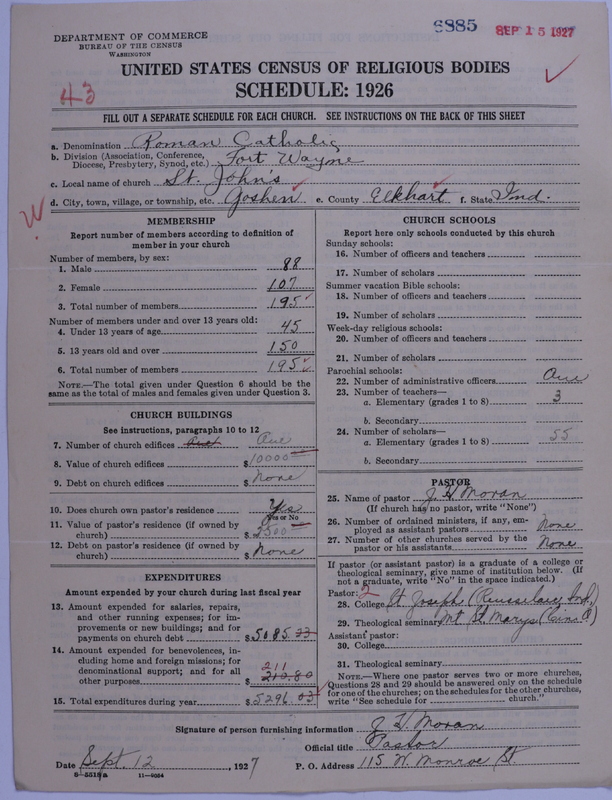 6885
SEP 15 1927
DEPARTMENT OF COMMERCE
BUREAU OF THE CENSUS
WASHINGTON
UNITED STATES CENSUS OF RELIGIOUS BODIES
SCHEDULE: 1926
43
FILL OUT A SEPARATE SCHEDULE FOR EACH CHURCH. SEE INSTRUCTIONS ON THE BACK OF THIS SHEET
a. Denomination Roman Catholic
b. Division (Association, Conference, Diocese, Presbytery, Synod, etc.) Fort Wayne
c. Local name of church St. John's
d. City, town, village, or township, etc. Goshen e. County Elkhart f. State Ind.
W
MEMBERSHIP
Report number of members according to definition of
member in your church
Number of members, by sex:
1. Male 88
2. Female 107
3. Total number of members 195
Number of members under and over 13 years old:
4. Under 13 years of age 45
5. 13 years old and over 150
6. Total number of members 195
NOTE.—The total given under Question 6 should be
same as the total of males and females given under Question 3.
CHURCH BUILDINGS
See instructions, paragraphs 10 to 12
7. Number of church edifices One
8. Value of church edifices $10000
9. Debt on church edifices $ None
10. Does church own pastor's residence Yes
Yes or No
11. Value of pastor's residence (if owned by
church) $ 2500
12. Debt on pastor's residence (if owned by
church) $ None
EXPENDITURES
Amount expended by your church during last fiscal year
13. Amount expended for salaries, repairs,
and other running expenses; for im-
provements or new buildings; and for
payments on church debt $5085.23
14. Amount expended for benevolences, in-
cluding home and foreign missions; for
denominational support; and for all
other purposes $ 210.80
211
15. Total expenditures during year $5296.03
CHURCH SCHOOLS
Report here only schools conducted by this church
Sunday schools:
16. Number of officers and teachers
17. Number of scholars
Summer vacation Bible schools:
18. Number of officers and teachers
19. Number of scholars
Week-day religious schools:
20. Number of officers and teachers
21. Number of scholars
Parochial schools:
22. Number of administrative officers One
23. Number of teachers—
a. Elementary (grades 1 to 8) 3
b. Secondary
24. Number of scholars—
a. Elementary (grades 1 to 8) 55
b. Secondary
PASTOR
25. Name of pastor J H Moran
(If church has no pastor, write "None")
26. Number of ordained ministers, if any, em-
ployed as assistant pastors None
27. Number of other churches served by the
pastor or his assistants None
If pastor (or assistant pastor) is a graduate of a college or
theological seminary, give name of institution below. (If
not a graduate, write "No" in the space indicated.)
Pastor: 2
28. College St. Joseph (Rensselaer Ind.)
29. Theological seminary Mt St. Marys (Cinn O)
Assistant pastor:
30. College
31. Theological seminary
NOTE.—Where one pastor serves two or more churches,
Questions 28 and 29 should be answered only on the schedule
for one of the churches; on the schedules for the other churches,
write "See schedule for church."
Signature of person furnishing information J H Moran
Official title Pastor
Date Sept. 12, 1927 P. O. Address 115 W. Monroe St.
8-5519a 11-9034